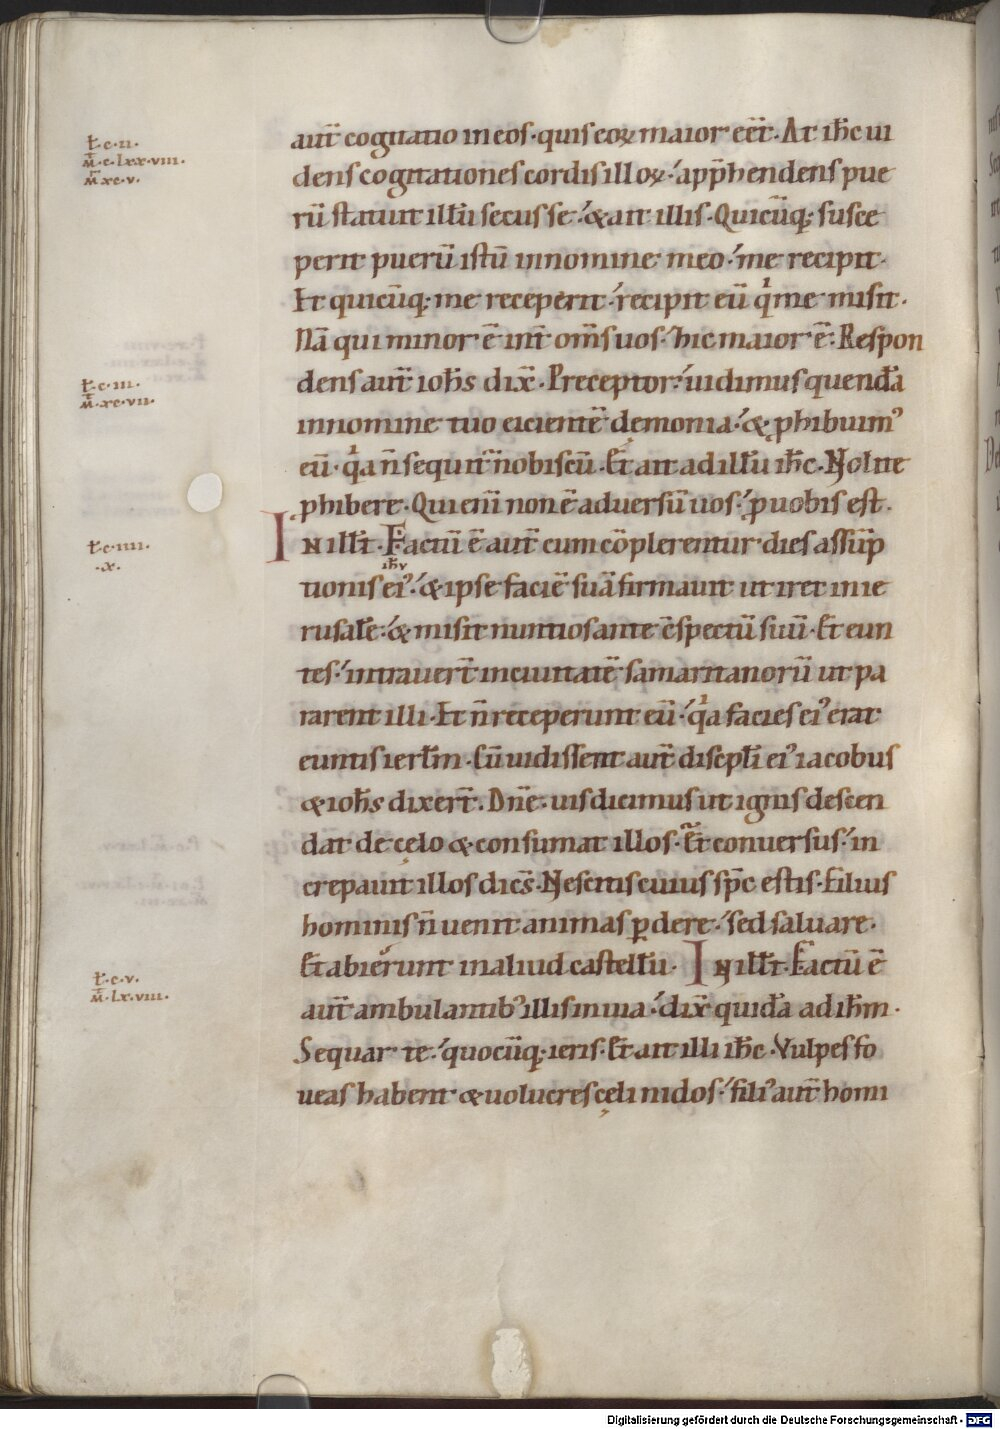 ł·c·ii·
m̄·c·lxx·viii·
m̄r xc·v·
aut̄ cogitatio in eos· quis eoꝝ maior eēt· At ih̄c ui
dens cogitationes cordis illoꝝ· app̄hendens pue
rū statuit illū secus se· & ait illis· Quicūq; susce
perit puerū istū in nomine meo· me recipit·
Et quicūq; me receperit· recipit eū qͥ me misit·
Nā qui minor ē int̄ om̄s uos· hic maior ē· Respon
ł·c·iii·
m̄·xc·vii·
dens aut̄ ioħs dix̄· Preceptor· uidimus quendā
in nomine tuo eicientē dęmonia· & ꝓhibuimꝰ
eū· qͥa n̄ sequit̄ nobiscū· Et ait ad illū ih̄c· Nolite
ꝓhibere· Qui eni̅ non ē aduersū uos· ꝓ uobis est·
ł·c·iiii·
·x·
IN ill̄ t̄· Factū ē aut̄ cum cōplerentur dies assūp
ih̄u
tionis eiꝰ· & ipse faciē suā firmauit ut iret in ie
rusalē· & misit nuntios ante ɔ̄spectū suū· Et eun
tes· intrauer̄t in ciuitatē samaritanorū ut pa
rarent illi· Et n̄ receperunt eū· qͥa facies eiꝰ erat
euntis ierl̄m· Cū uidissent aut̄ discipl̄i eiꝰ iacobus
& ioħs dixer̄t· Dn̄e· uis dicimus ut ignis descen
dat de cęlo & consumat illos· Et conuersus· in
crepauit illos dic̄s· Nescitis cuius sp̄c estis· Filius
hominis n̄ uenit animas ꝑdere· sed saluare·
ł·c·v·
m̄·lx·viii·
Et abierunt in aliud castellū· IN ill̄ t̄· Factū ē
aut̄ ambulantibꝰ illis in uia· dix̄ quidā ad ih̄m·
Sequar te· quocūq; ieris· Et ait illi ih̄c· Vulpes fo
ueas habent & uolucres cęli nidos· filiꝰ aut̄ homi
Digitalisierung gefördert durch die Deutsche Forschungsgemeinschaft - DFG